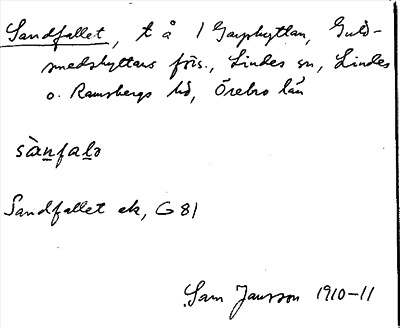 Sandfallet, t å / Garphyttan, Guld-
smedshyttans förs., Lindes sn, Lindes
o. Ramsbergs hd, Örebro län
sànfalə
Sandfallet ek, G 81
Sam Jansson 1910-11